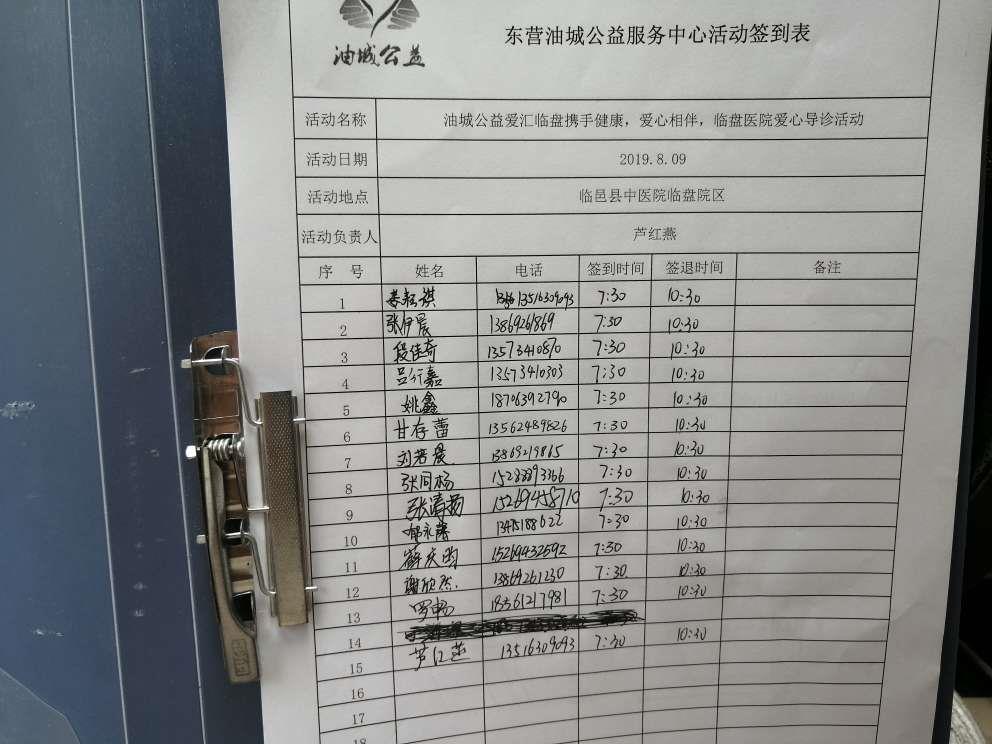 油城公益
东营油城公益服务中心活动签到表
活动名称 油城公益爱汇临盘携手健康，爱心相伴，临盘医院爱心导诊活动
活动日期 2019.8.09
活动地点 临邑县中医院临盘院区
活动负责人 芦红燕
序号 姓名 电话 签到时间 签退时间 备注
1 13516309093 7:30 10:30
2 张伊晨 13869261869 7:30 10:30
3 段佳奇 13573410870 7:30 10:30
4 吕行嘉 13573410303 7:30 10:30
5 姚鑫 18706392790 7:30 10:30
6 甘存蕾 13562489826 7:30 10:30
7 刘若晨 13869219865 7:30 10:30
8 张同杨 7:30 10:30
9 张清扬 15269458710 7:30 10:30
10 7:30 10:30
11 薛庆昀 15269432592 7:30 10:30
12 谢欣然 13869261230 7:30 10:30
13 罗畅 7:30 10:30
14
15 芦红燕 13516309093 7:30 10:30
16
17
18